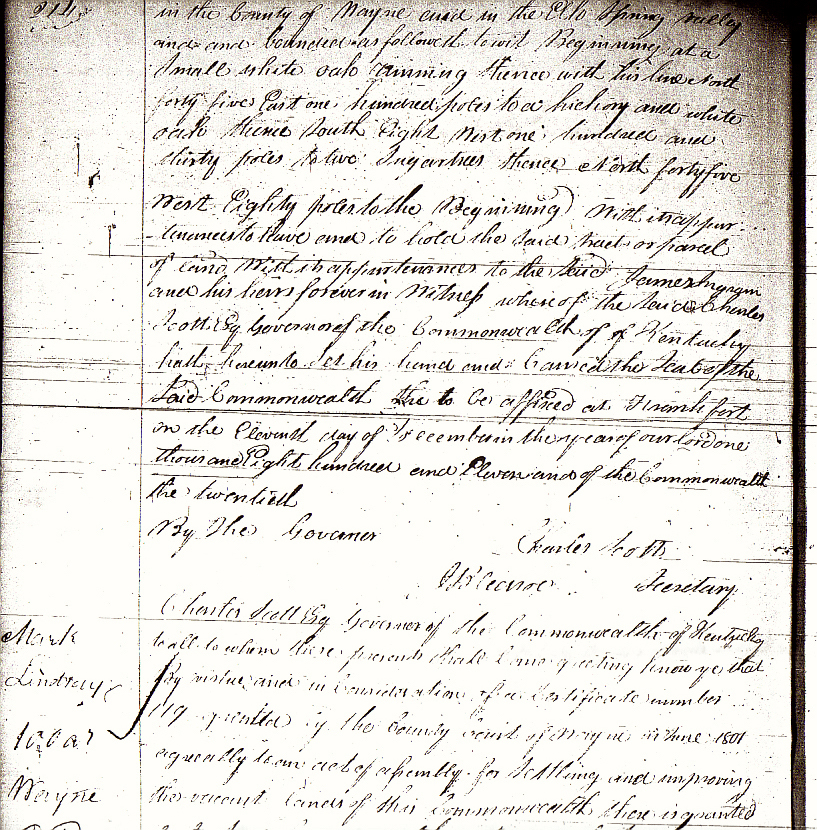 in the County of Wayne and in the Elk Spring valley
and and bounded as followeth to wit Beginning at a
Small white oak running thence with his line North
forty five East one hundred poles to a hickory and white
oak thence South Eight West one hundred and
thirty poles to two Sugartrees thence North forty five
West Eighty poles to the Beginning With its appur
tenances to have and to hold the said tract or parcel
of land With its appurtenances to the said James Ingram
and his heirs forever in Witness whereof the said Charles
Scott Esq Governor of the Commonwealth of of Kentucky
hath hereunto set his hand and Caused the Seal of the
Said Commonwealth the to be affixed at Frankfort
on the Eleventh day of December in the year of our lord one
thousand Eight hundred and Eleven and of the Commonwealth
the twentieth
By the Governor
Charles Scott
Secretary
Charles Scott Esq Governor of the Commonwealth of Kentucky
to all to whom these presents shall Come greeting know ye that
Mark
By virtue and in Consideration of a Certificate number
Lindsay
119 granted by the County Court of Wayne in June 1801
agreeably to an act of assembly for Settling and improving
Wayne
the vacant lands of this Commonwealth there is granted